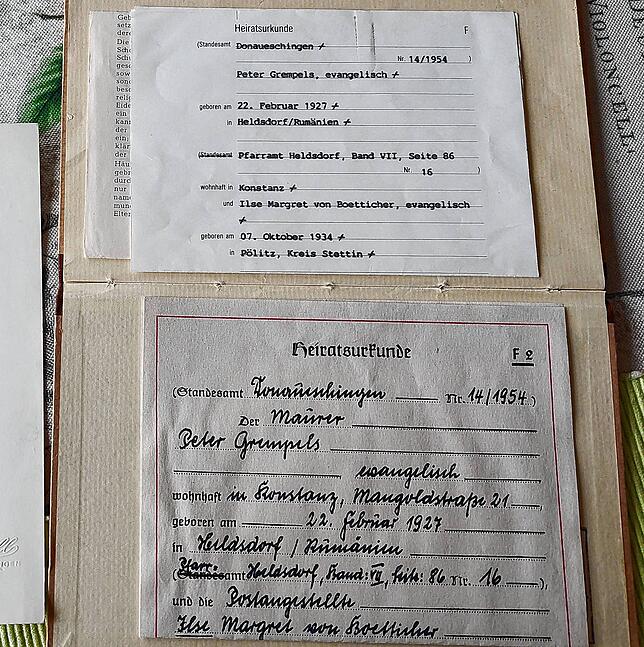 Heiratsurkunde F
(Standesamt Donaueschingen
Nr. 14/1954 )
Peter Grempels, evangelisch
geboren am 22. Februar 1927
in Heldsdorf/Rumänien
(Standesamt Pfarramt Heldsdorf, Band VII, Seite 86
Nr. 16 )
wohnhaft in Konstanz
und Ilse Margret von Boetticher, evangelisch
geboren am 07. Oktober 1934
in Pölitz, Kreis Stettin
Heiratsurkunde F 2
(Standesamt Donaueschingen Nr. 14/1954.)
Der Maurer
Peter Grempels
evangelisch
wohnhaft in Konstanz, Mangoldstraße 21
geboren am 22. Februar 1927
in Heldsdorf / Rumänien
Pfarr-
(Standesamt Heldsdorf, Band: VII, Seite: 86 Nr. 16 ),
und die Postangestellte
Ilse Margret von Boetticher
VIOLONCELLE